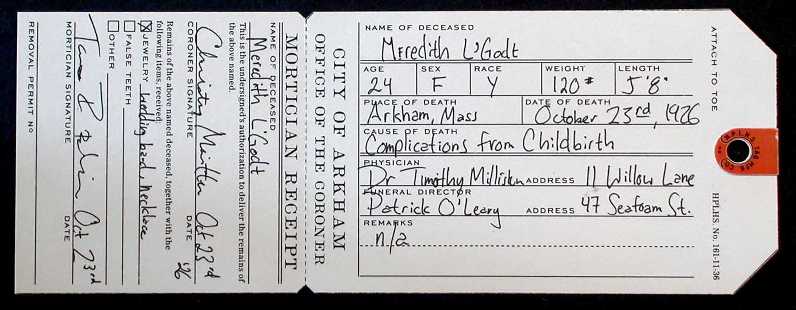 NAME OF DECEASED
Meredith L'Godt
AGE SEX RACE WEIGHT LENGTH
24 F Y 120# 5'8"
PLACE OF DEATH DATE OF DEATH
Arkham, Mass October 23rd, 1926
CAUSE OF DEATH
Complications from Childbirth
PHYSICIAN
Dr Timothy ADDRESS 11 Willow Lane
FUNERAL DIRECTOR
Patrick O'Leary ADDRESS 47 Seafoam St.
REMARKS
n/a
ATTACH TO TOE
HPLHS. No. 161-11-36
CITY OF ARKHAM
OFFICE OF THE CORONER
MORTICIAN RECEIPT
NAME OF DECEASED
Meredith L'Godt
This is the undersigned's authorization to deliver the remains of
the above named.
Oct 23rd '26
CORONER SIGNATURE DATE
Remains of the above named deceased, together with the
following items, received:
☒ JEWELRY wedding band, necklace
☐ FALSE TEETH
☐ OTHER
Oct 23rd
MORTICIAN SIGNATURE DATE
REMOVAL PERMIT No